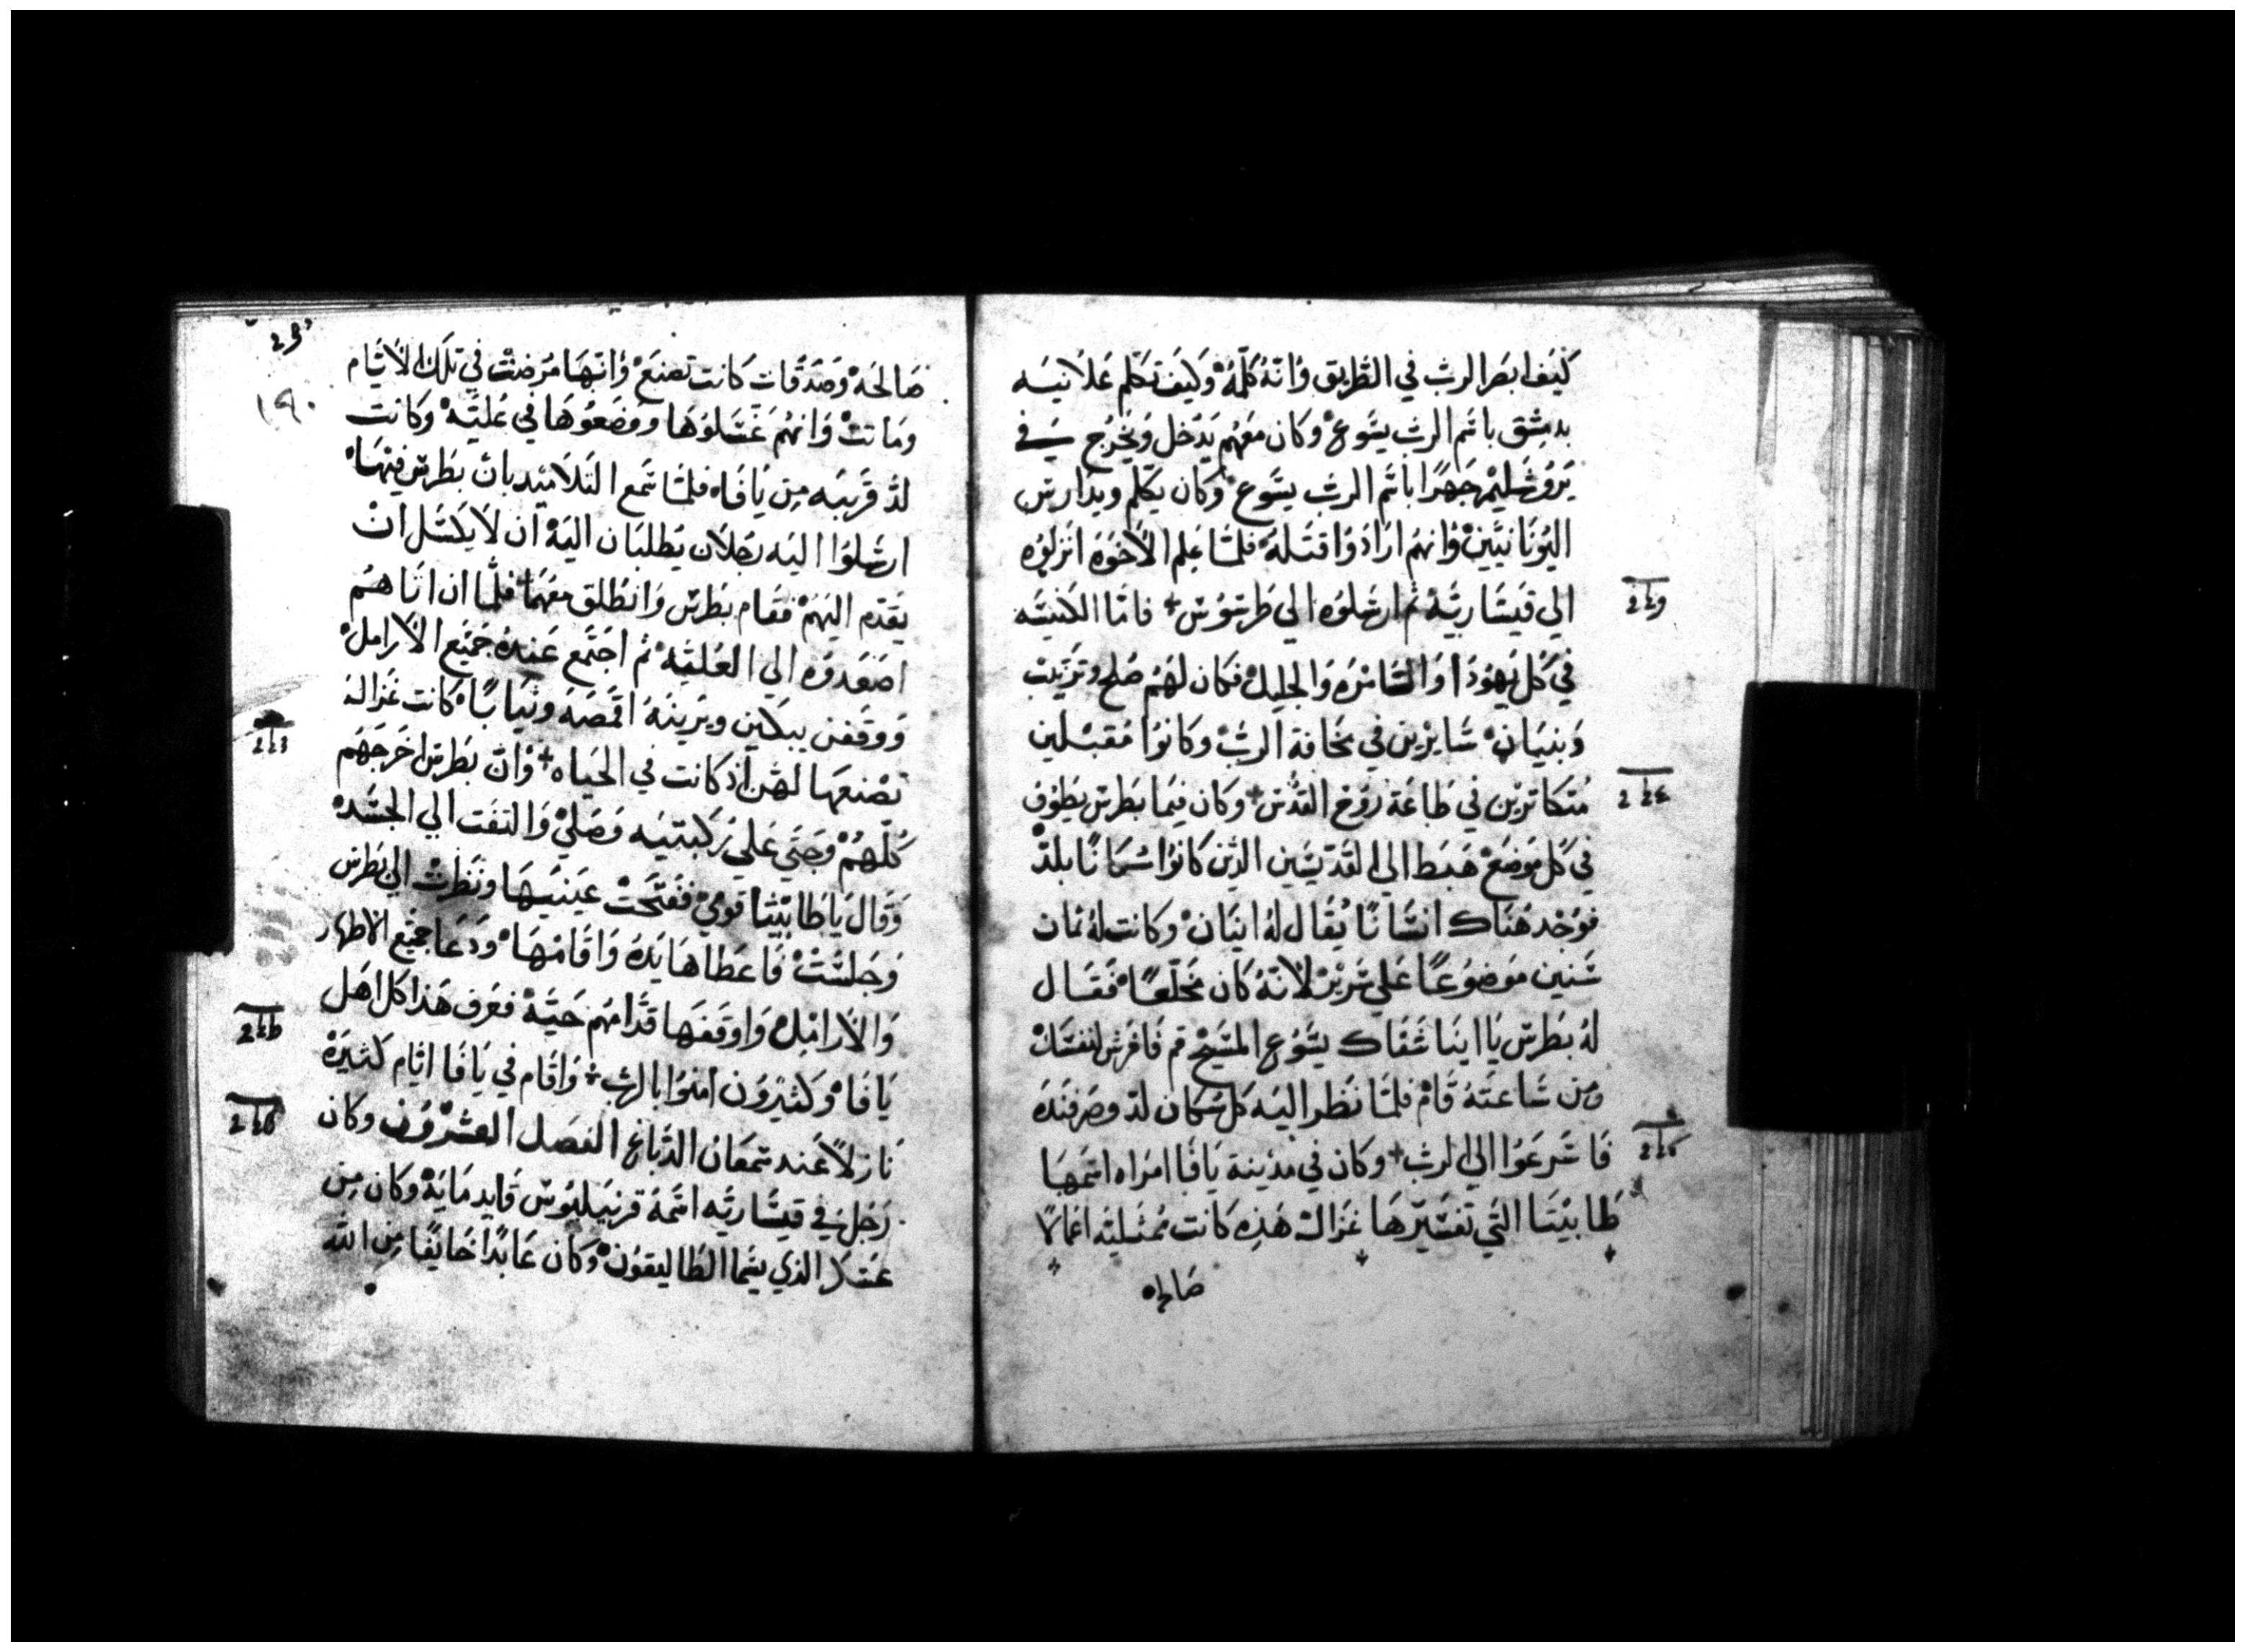 كَيْف ابصَر الرب في الطَريق وَانّهُ كَلّمَهُ وَكيَف تكَلم عَلانيَه
بدمشِق باسْم الرب يسَوع وكان معَهُم يَدخل وَيخرُج في
يَروُشَليْم جَهرًا باسْم الرب يسَوع وَكان يكَلم ويدَارسِ
اليُونَانيّينْ وَانهُم ارَادوُا قتَلهُ فلمَّا عَلم الاخوَة انزَلوُه
الي قيسَاريّة ثم ارسَلوُه الي طَرسُوسْ + فامّا الكنيسَه
في كل يَهوُدَا وَالسَّامرَه وَالجليل فكان لهُم صُلح وتزييْن
وَبنيَان سَايرْين في مخافة الرب وكانوُا مُقبلين
مُتكاثرين في طاعَة روُح القدُس + وكان فيمَا بطرس يطوُف
في كل موضَع هَبَط الي القدّيسَين الذين كانوُا سُكانًا بلدّ
فوَجد هُناك انسَانًا يُقال لهُ اينيَان وكانت لهُ ثمان
سَنين موَضوُعًا عَلي سَريْر لانّهُ كان مخلّعًا فقَال
لهُ بطرس يَا اينيَا شَفاك يسَوُع المسَيح قم فَافرش لنفسَك
وَمن سَاعتَهُ قَام فلمّا نظَر اليَه كل سُكان لدّ وصَرفنَدَه
فَاسَرعَوُا الي الرب + وكان في مدَينة يَافا امرَاه اسمهَا
طَابيْتَا التَي تفسَيْرهَا غزَال هَذِه كانت مُمتَليَه اعمَالاً
صَالحه
صَالحَه وصَدَقات كانت تصنَع وَانهَا مَرضتْ في تلكَ الايَام
ومَاتتْ وَانهُم غَسَلوُهَا ووَضَعُوهَا في عُليَّه وكانت
لدّ قرَيبَه مِن يَافَا فلمّا سَمع التَلاميَد بان بطَرس فيهَا
ارسَلوُا اليَه رَجلان يَطلبَان اليَهْ ان لا يكسَل انْ
يقدم اليهَمْ فقَام بطَرس وَانطَلق معَهمَا فلمّا ان اتَاهم
اصَعَدوَه الي العُليَّه ثم اجتَمع عَندهُ جميَع الارامل
وَوقفَن يبكين ويرينهُ اقمصَة وثيَابًا كانت غزَاله
تصْنعهَا لهَن اذ كانت في الحيَاه + وَانّ بطَرس اخرَجَهَم
كُلهُمْ وَجثَي عَلي ركبتيَه وصَليْ وَالتفَت الي الجسَد
وَقال يَا طَابيْثا قومي ففتَحتْ عيَنيَهَا ونَظرتْ الي بطَرس
وَجَلسَتْ فاعطَاهَا يَدهُ وَاقامَهَا ودَعَا جميَع الاطهار
وَالارَامل وَاوقفَهَا قدَامهُم حَيّه فعَرف هَذا كل اهَل
يَافَا وكثيْروُن امَنوُا بالرب + وَاقام في يَافا ايّام كثيَرة
نَازلاً عَند سَمعَان الدّباغ الفصَل العشرْوُن وكان
رَجل في قيسَاريّه اسَمهُ قرنيَليُوس قايد مايَة وكان مِن
عَسَكر الذي يسَما الطَاليقوُن وكان عَابدًا خَايفًا مِن الله